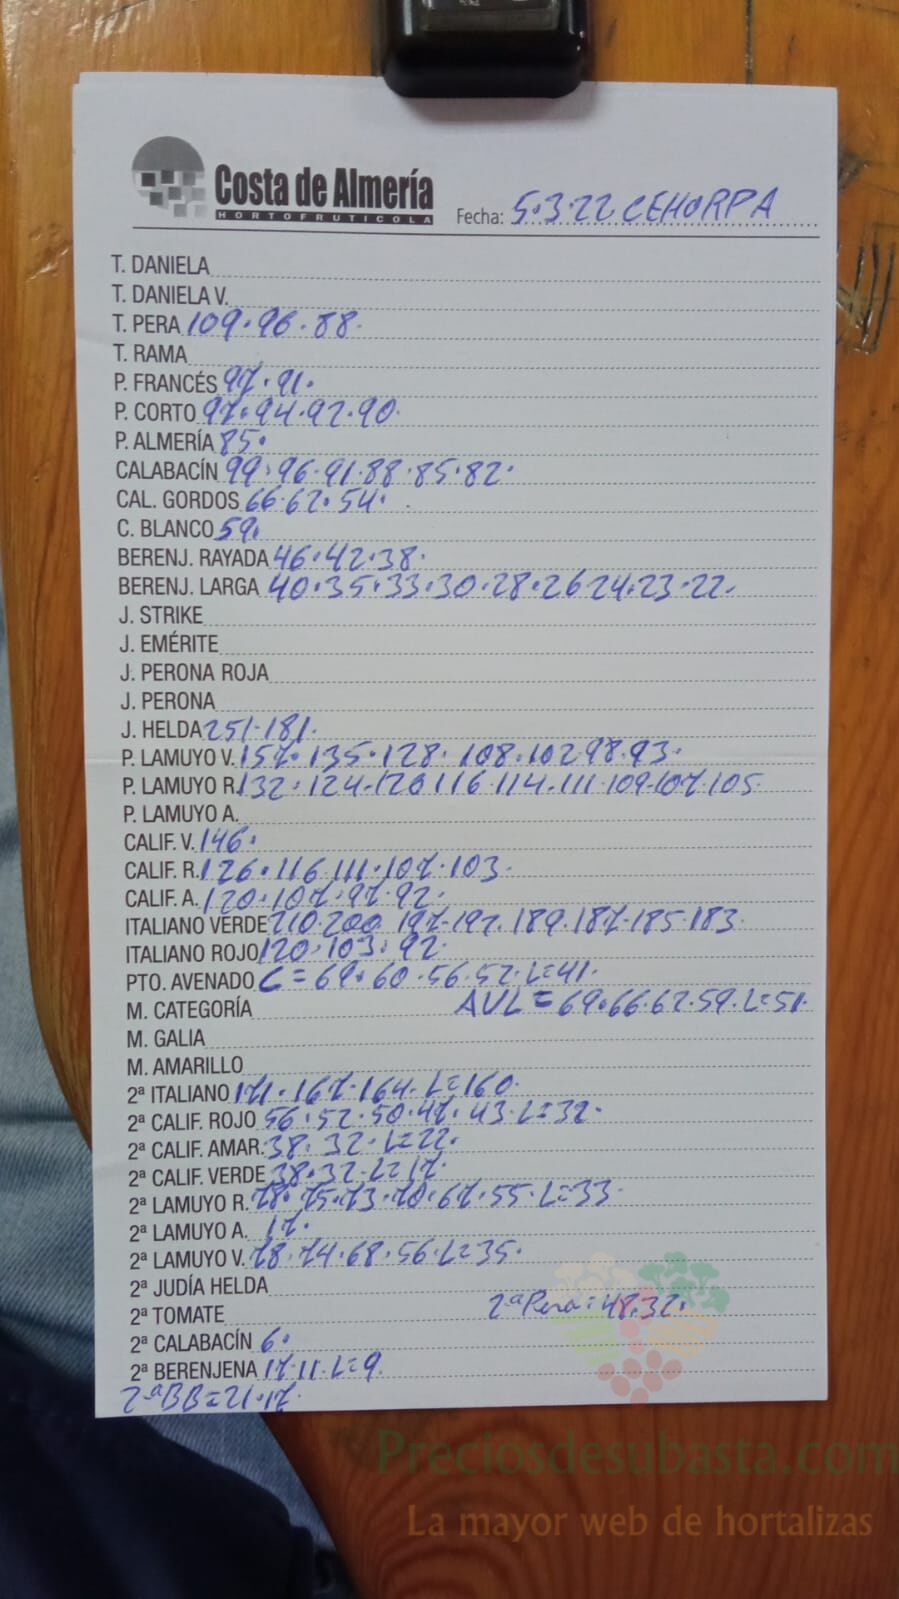 Costa de Almería
HORTOFRUTICOLA
Fecha: 5.3.22 CEHORPA
T. DANIELA
T. DANIELA V.
T. PERA 109.96.88.
T. RAMA
P. FRANCÉS 97.91.
P. CORTO 97.94.92.90.
P. ALMERÍA 85.
CALABACÍN 99.96.91.88.85.82.
CAL. GORDOS 66.62.54.
C. BLANCO 59.
BERENJ. RAYADA 46.42.38.
BERENJ. LARGA 40.35.33.30.28.26 24.23.22.
J. STRIKE
J. EMÉRITE
J. PERONA ROJA
J. PERONA
J. HELDA 251.181.
P. LAMUYO V. 157.135.128.108.102 98.93.
P. LAMUYO R. 132.124.120 116.114.111.109.107.105.
P. LAMUYO A.
CALIF. V. 146.
CALIF. R. 126.116 111.107.103.
CALIF. A. 120.107.97.92.
ITALIANO VERDE 210.200 197.192.189.187.185.183.
ITALIANO ROJO 120.103.92.
PTO. AVENADO C=69.60.56.52.L=41.
M. CATEGORÍA AVL=69.66.62.59.L=51.
M. GALIA
M. AMARILLO
2ª ITALIANO 171.167.164.L=160.
2ª CALIF. ROJO 56.52.50.47.43.L=32.
2ª CALIF. AMAR. 38.32.L=22.
2ª CALIF. VERDE 38.32.L=17.
2ª LAMUYO R. 78.75.73.70.67.55.L=33.
2ª LAMUYO A. 17.
2ª LAMUYO V. 78.74.68.56.L=35.
2ª JUDÍA HELDA
2ª TOMATE 2ª Pera=48.32.
2ª CALABACÍN 6.
2ª BERENJENA 17.11.L=9.
2ªBB=21.17.
Preciosdesubasta.com
La mayor web de hortalizas